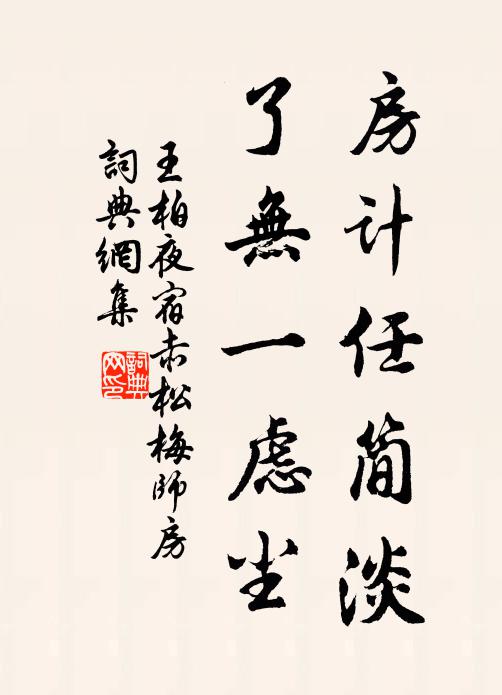 房计任简淡
了無一慮尘
王柏夜宿赤松梅師房
詞典網集
詞典网印